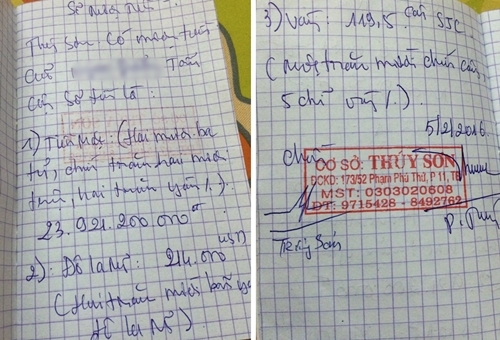 Thúy Sơn Có mượn tiền
Của
Số tiền là :
1) Tiền Mặt: (Hai mươi ba
tỷ, chín trăm hai mươi
hai trăm ngàn /.)
23.921.200.000đ
2) Đô la Mỹ: 214.000 USD
(Hai trăm mười bốn
đô la Mỹ)
3) Vàng: 119,5 cây SJC
(một trăm mười chín cây,
5 chỉ vàng /.)
5/2/2016
CƠ SỞ: THÚY SƠN
ĐCKD: 173/52 Phạm Phú Thứ, P 11, TB
MST: 0303020608
ĐT: 9715428 - 8492762